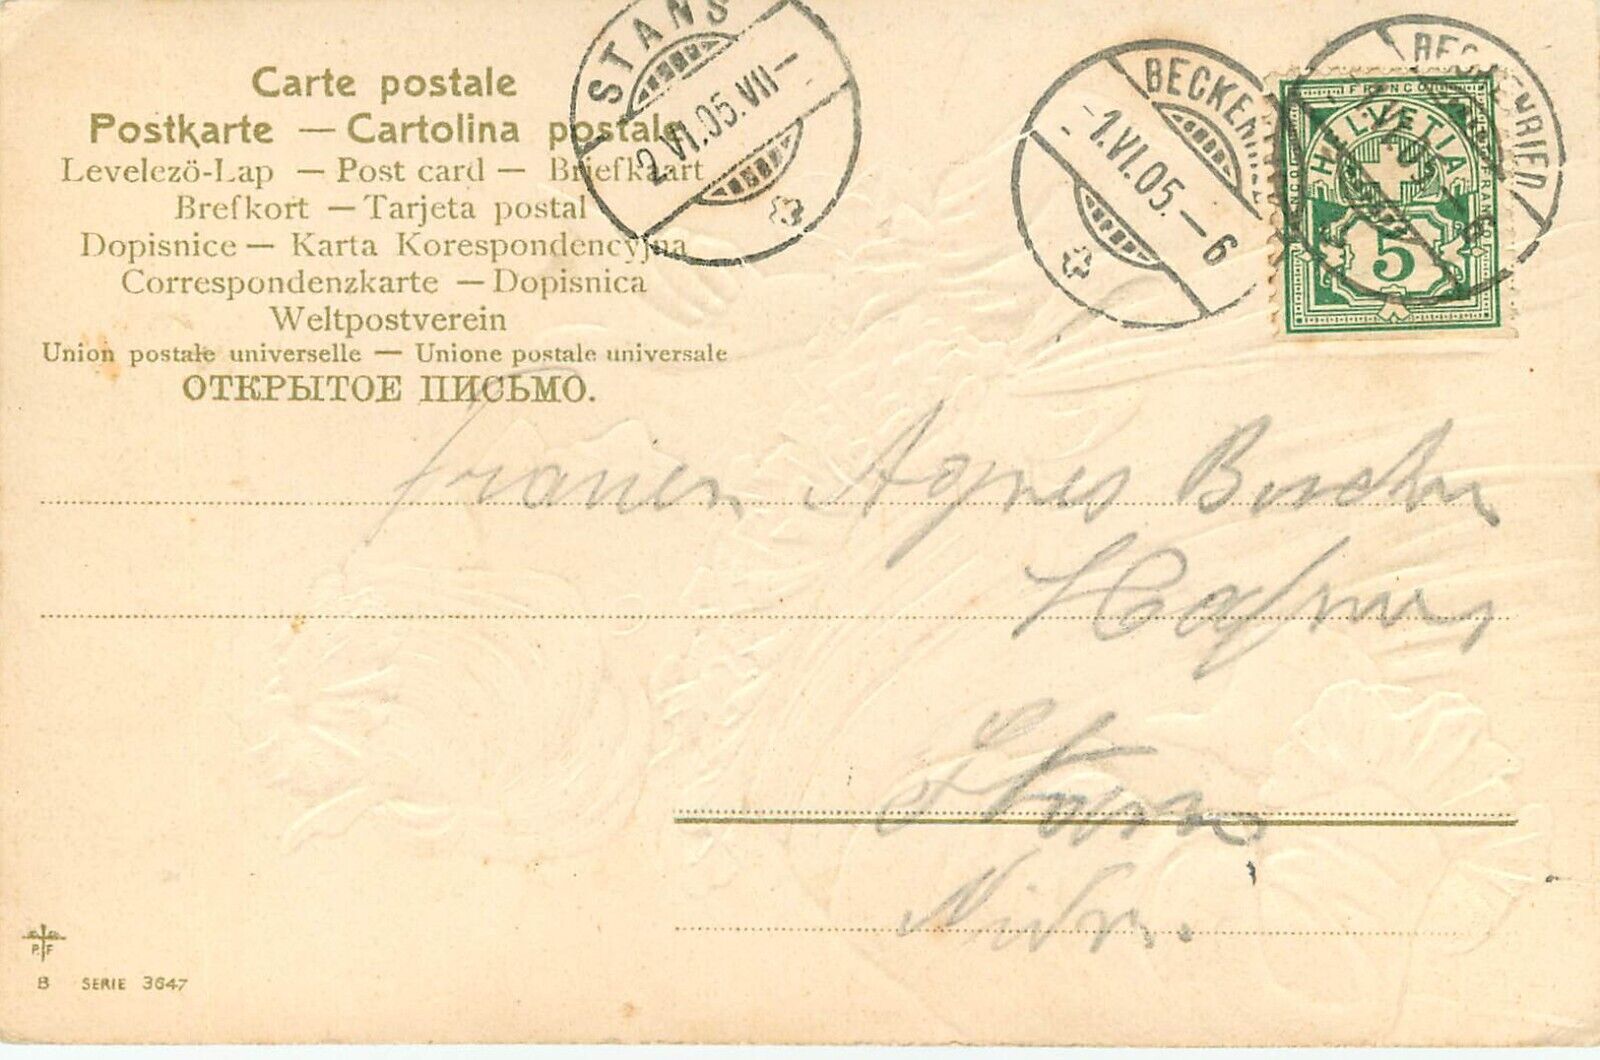 Carte postale
Postkarte — Cartolina postale
Levelező-Lap — Post card — Briefkaart
Brefkort — Tarjeta postal
Dopisnice — Karta Korespondencyjna
Correspondenzkarte — Dopisnica
Weltpostverein
Union postale universelle — Unione postale universale
ОТКРЫТОЕ ПИСЬМО.
STANS
2.VI.05.VII—
BECKENRIED
-1.VI.05.—6
BECKENRIED
FRANCO
HELVETIA
FRANCO
FRANCO
5
Frauen Agnes
Stans
Nidw.
P.F
B SERIE 3647